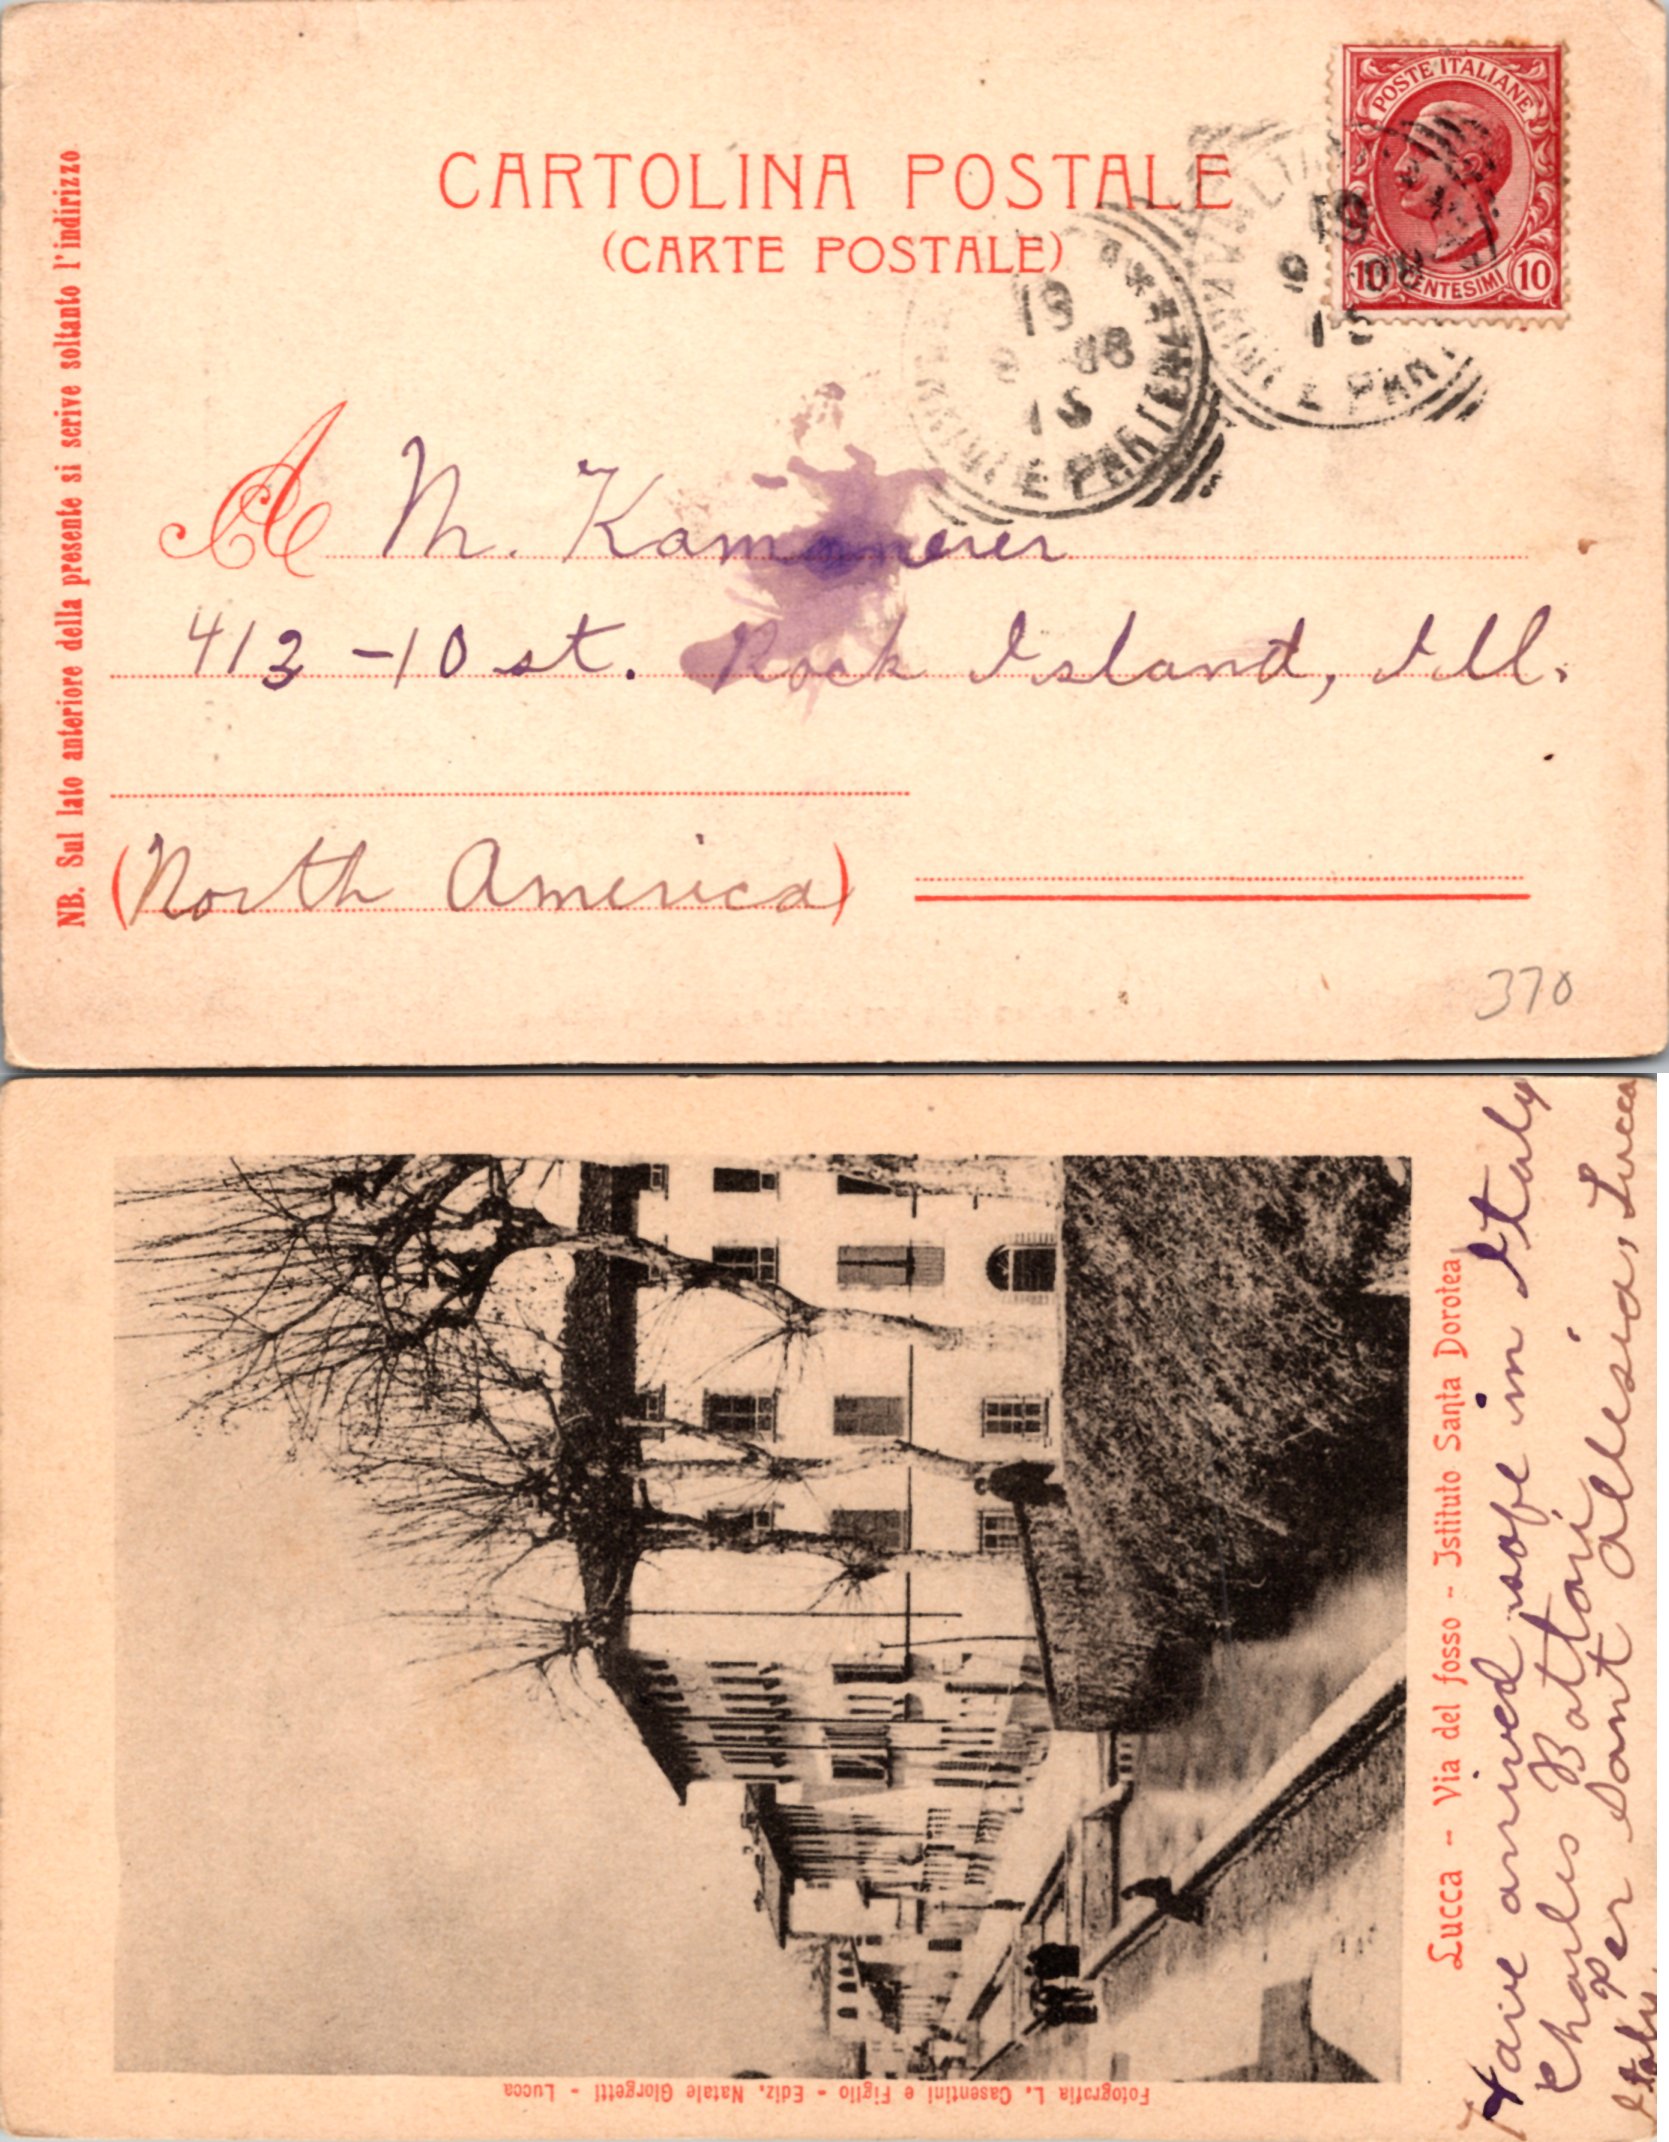 CARTOLINA POSTALE
(CARTE POSTALE)
POSTE ITALIANE
10 CENTESIMI 10
19
9 08
15
ARRIVI E PARTENZE
19
9 08
15
E PAR
NB. Sul lato anteriore della presente si serive soltanto l'indirizzo
A M. Kammerer
413-10 st. Rock Island, Ill.
(North America)
370
Lucca - Via del fosso - Istituto Santa Dorotea
Fotografia L. Casentini e Figlio - Ediz. Natale Giorgetti - Lucca
Have arrived safe in Italy
Charles Bottari
Per Sant Allesio, Lucca
Italy.